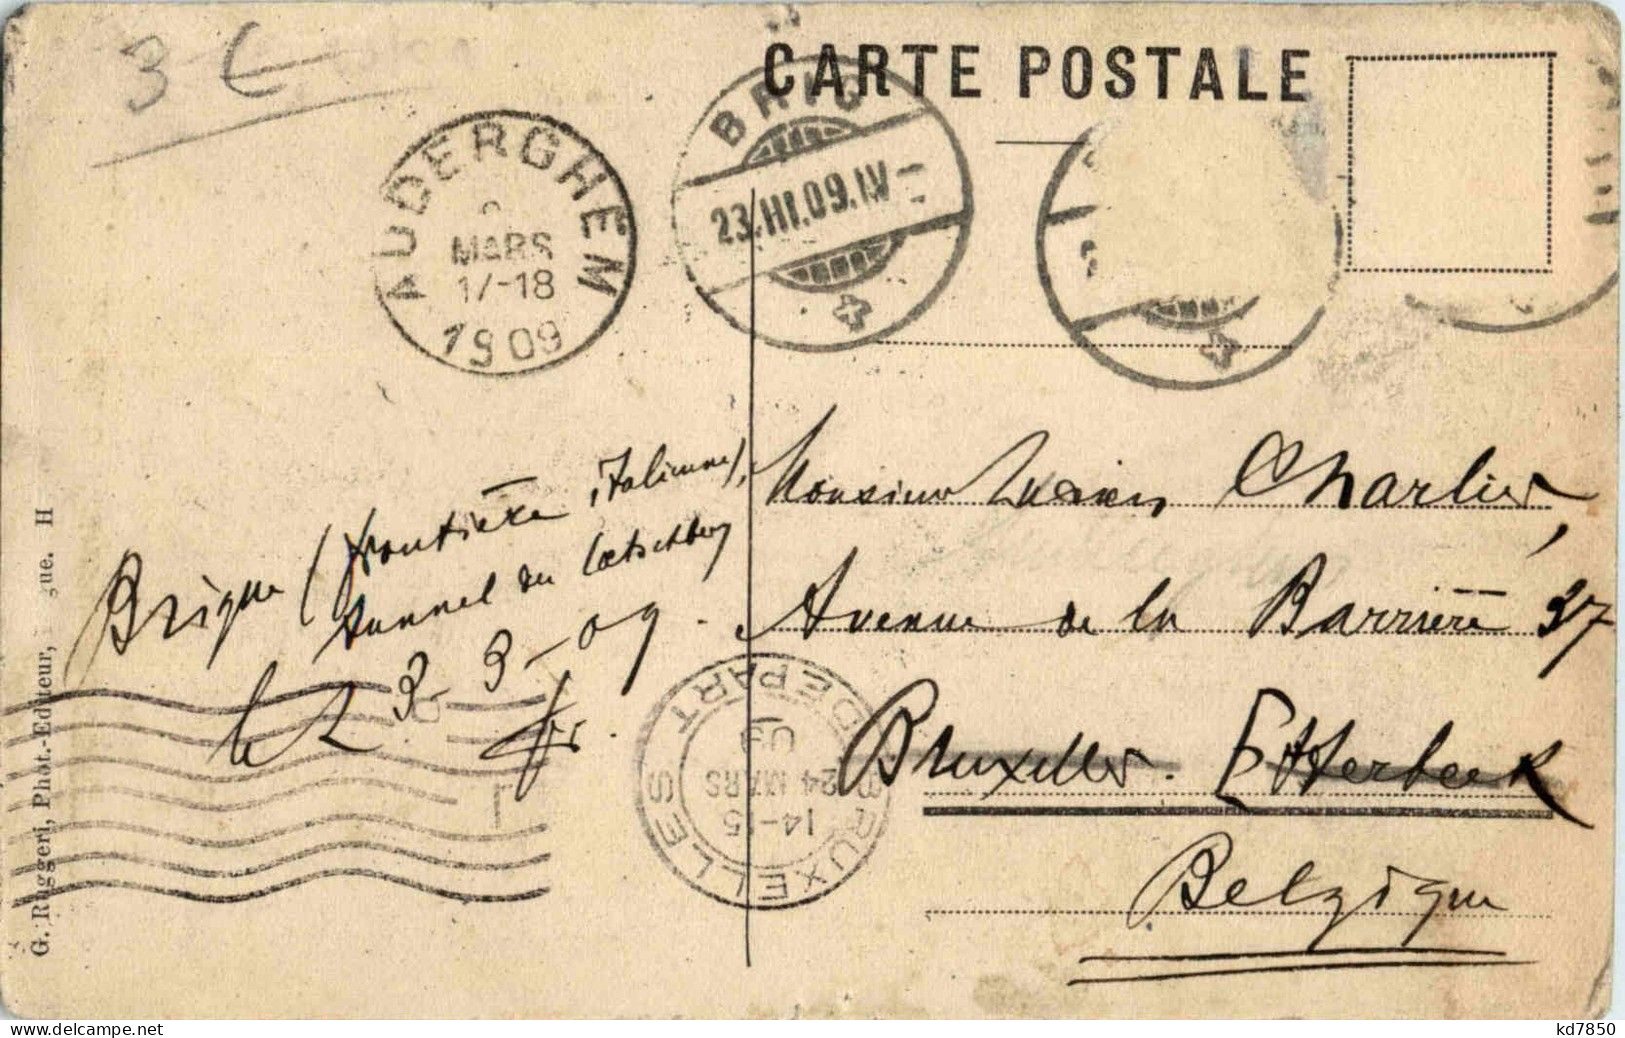 3 €
CARTE POSTALE
BRIG
23.III.09.IV
AUDERGHEM
MARS
17-18
1909
Brigue (frontière italienne),
tunnel du Loetschberg
le 23-3-09.
Monsieur Lucien Charlier,
Avenue de la Barrière 37
Bruxelles. Etterbeek
Belgique
BRUXELLES
DEPART
14-15
24 MARS
09
G. Ruggeri, Phot.-Editeur, gue. H
kd7850